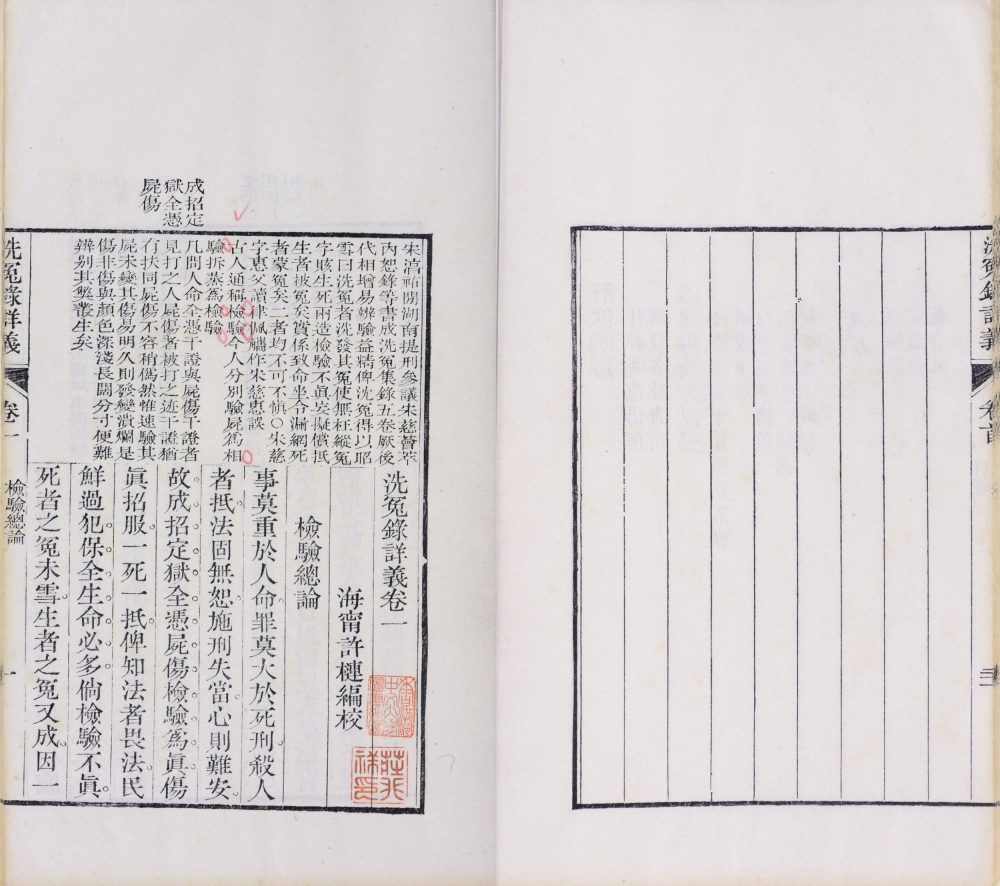 洗冤錄詳義
卷首
成招定
獄全憑
屍傷
宋淳祐閒湖南提刑參議宋慈薈萃
內恕錄等書成洗冤集錄五卷厥後
代相增易辨驗益精俾沈冤得以昭
雪曰洗冤者洗發其冤使無枉縱冤
字賅生死兩造檢驗不眞妄擬償抵
生者被冤矣實係致命率令漏網死
者蒙冤矣二者均不可不愼○宋慈
字惠父讀律佩觿作宋慈惠誤
古人通稱檢驗今人分別驗屍爲相
驗拆蒸爲檢驗
凡問人命全憑干證與屍傷干證者
見打之人屍傷者被打之迹干證猶
有扶同屍傷不容稍僞然惟速驗其
屍未變其傷易明久則發變潰爛是
傷非傷與顏色深淺長闊分寸便難
辨别其獘叢生矣
洗冤錄詳義卷一
海甯許槤編校
檢驗總論
事莫重於人命罪莫大於死刑殺人
者抵法固無恕施刑失當心則難安
故成招定獄全憑屍傷檢驗爲眞傷
眞招服一死一抵俾知法者畏法民
鮮過犯保全生命必多倘檢驗不眞
死者之冤未雪生者之冤又成因一
洗冤錄詳義
卷一
檢驗總論
一